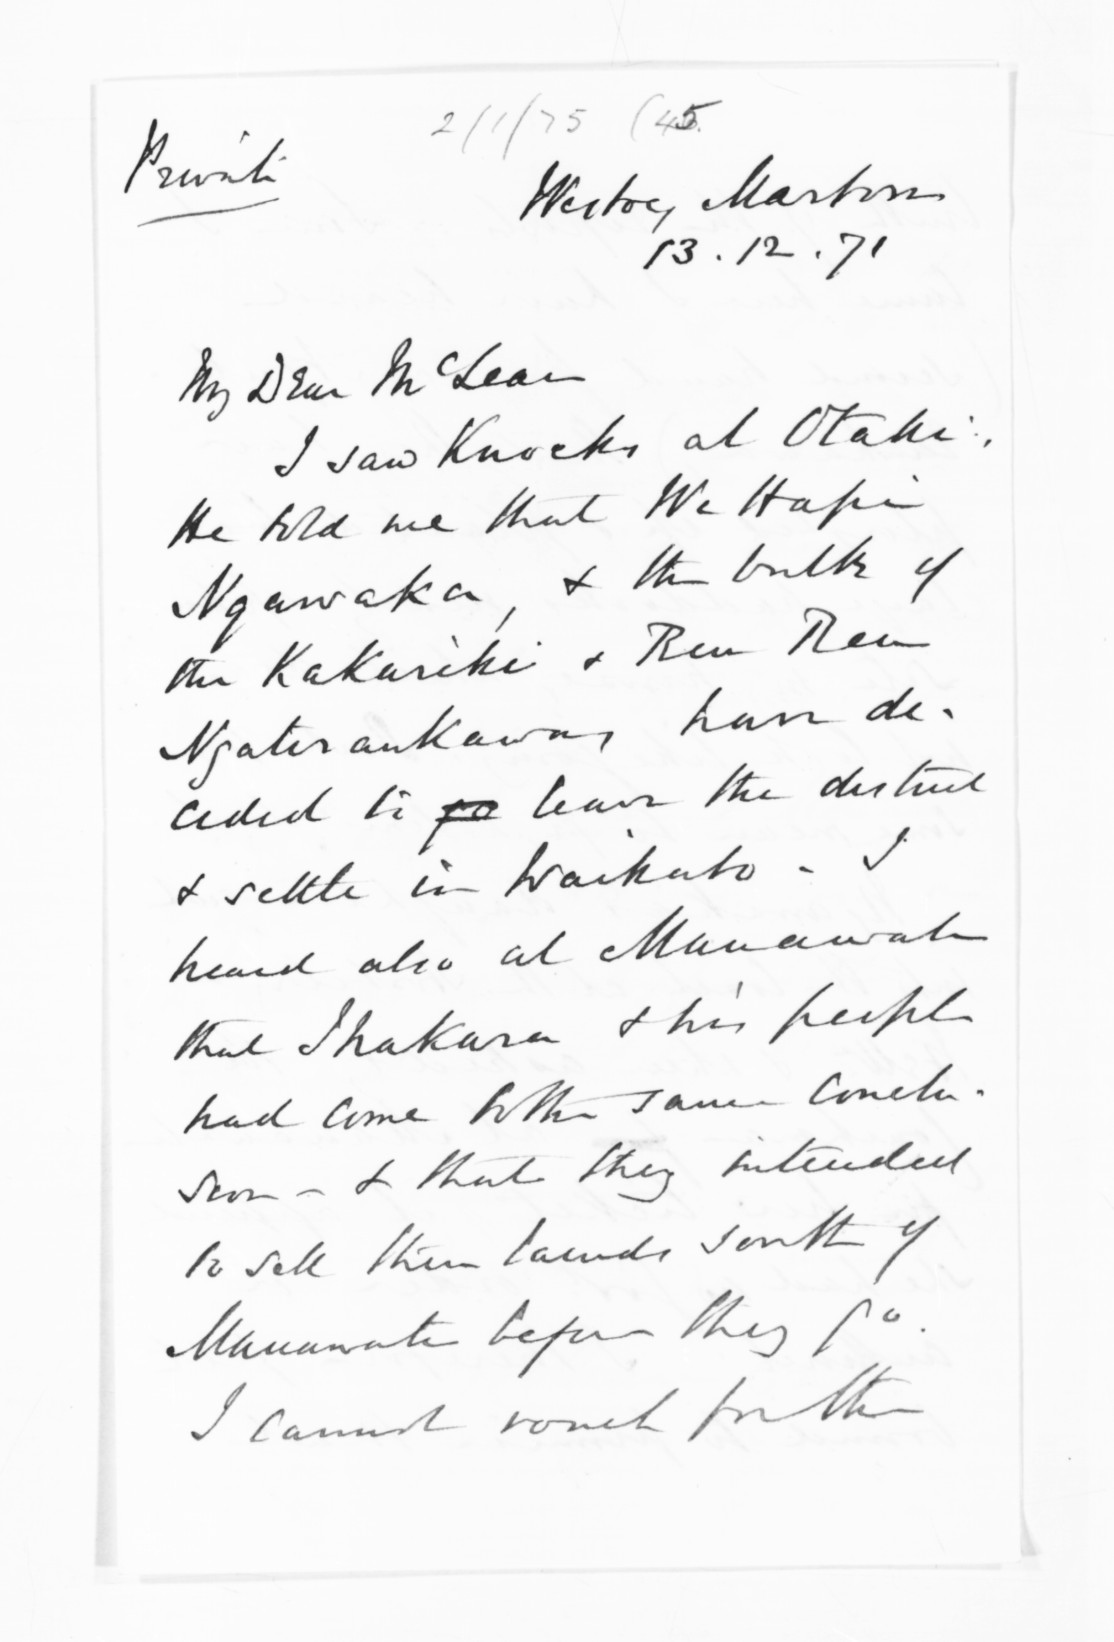 2/1/75 (45.
Private
Westoe, Marton
13.12.71
My Dear McLean
I saw Knocks at Otaki.
He told me that Wi Hapi
Ngawaka, & the bulk of
the Kakariki & Reu Reu
Ngatiraukawas have de-
cided to go leave the district
& settle in Waikato - I
heard also at Manawatu
that Ihakara & his people
had come to the same conclu-
sion - & that they intended
to sell their lands south of
Manawatu before they go.
I cannot vouch for the